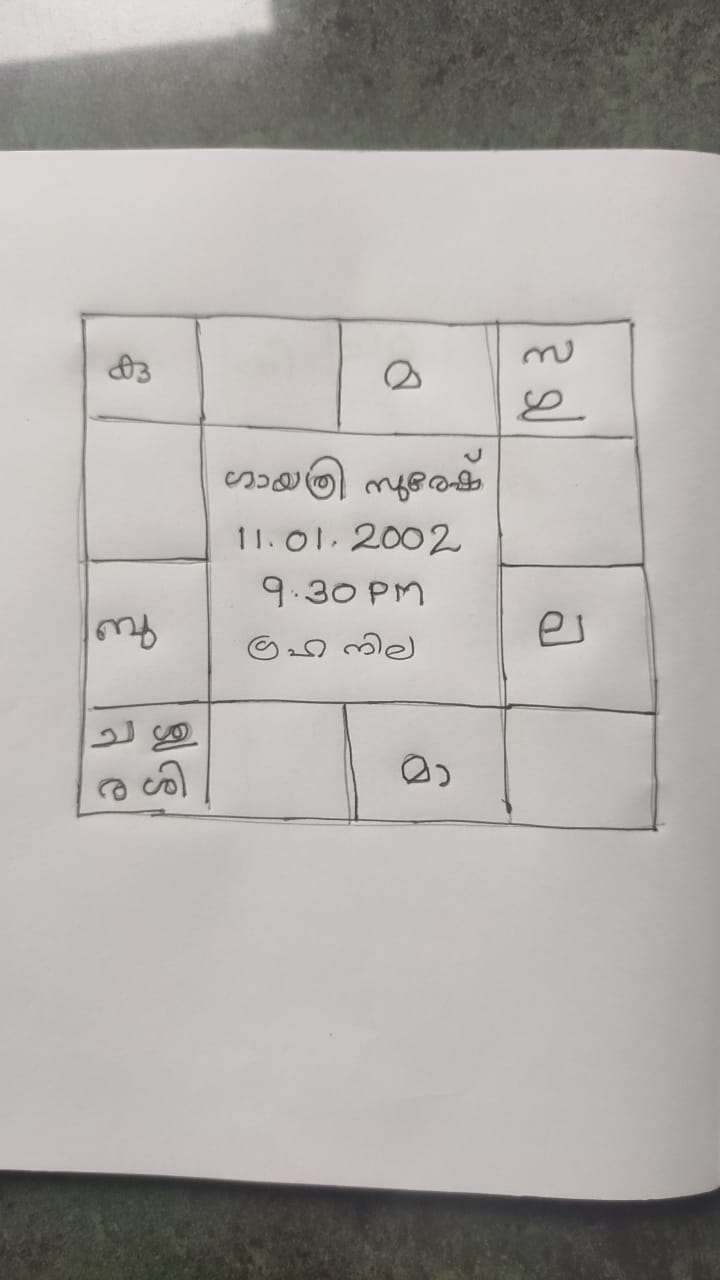 കു മ സ
ഗു
ഗായത്രി സുരേഷ്
11.01.2002
9.30 PM
ഗ്രഹ നില
ബു ല
ച ശു
ര ശി മാ